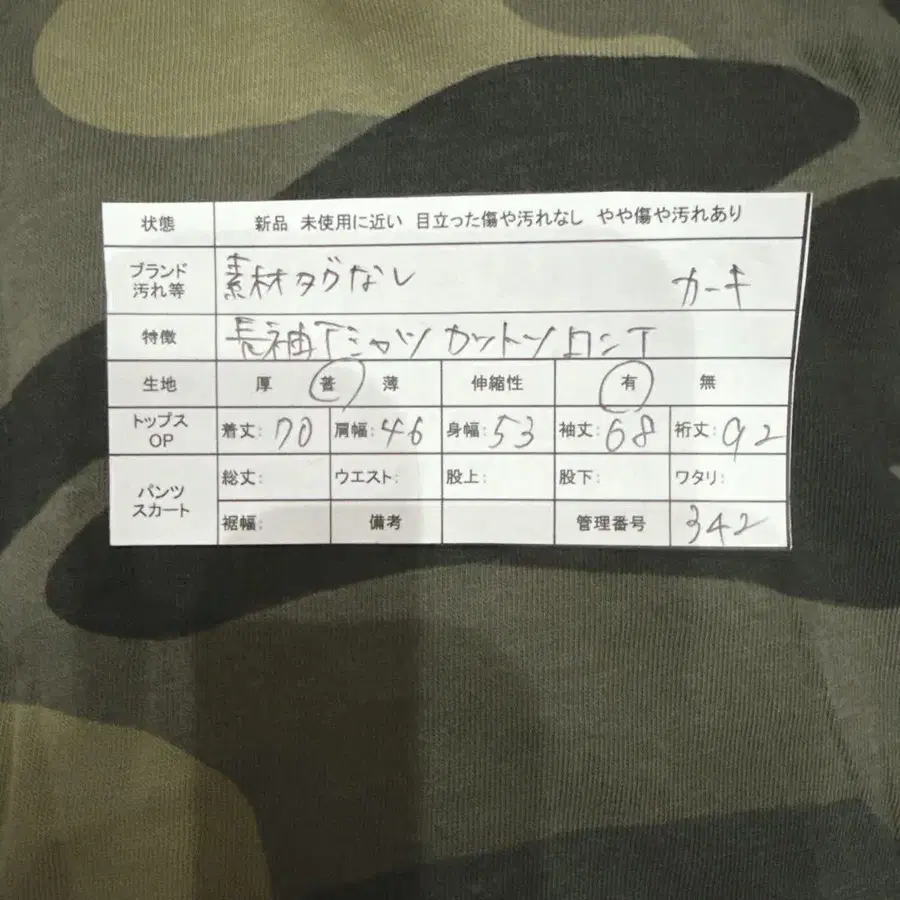 状態 新品 未使用に近い 目立った傷や汚れなし やや傷や汚れあり
ブランド 汚れ等 素材タグなし カーキ
特徴 長袖Tシャツ カットソー ロンT
生地 厚 普 薄 伸縮性 有 無
トップス OP 着丈: 70 肩幅: 46 身幅: 53 袖丈: 68 裄丈: 92
パンツ スカート 総丈: ウエスト: 股上: 股下: ワタリ:
裾幅: 備考 管理番号 342